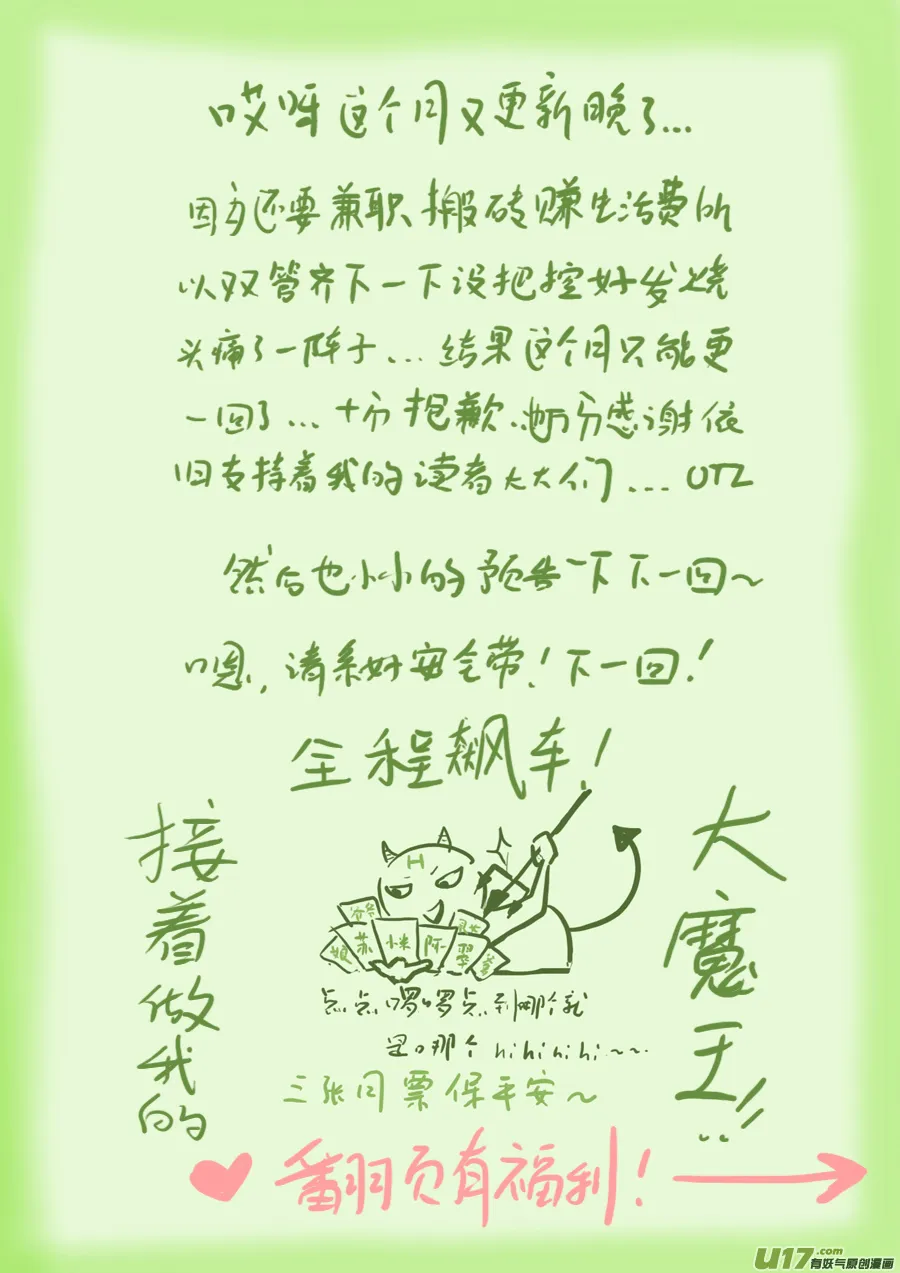 哎呀这个月又更新晚了...
因为还要兼职搬砖赚生活费所
以双管齐下一下没把控好发烧
头痛了一阵子...结果这个月只能更
一回了...十分抱歉..也万分感谢依
旧支持着我的读者大大们...OTZ
然后也小小的预告一下下一回~
嗯,请系好安全带!下一回!
全程飙车!
接着做我的
大魔王!!
H
爷爷
娘
苏
小米
阿
翠
点点啰啰点到哪个就
是哪个hihihihi~~..
三张月票保平安~
翻页有福利!
U17.com
有妖气原创漫画